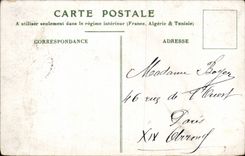 CARTE POSTALE
A utiliser seulement dans le régime intérieur (France, Algérie & Tunisie)
CORRESPONDANCE
ADRESSE
Madame Boyer
46 rue de l'Ourcq
Paris
XIX Arrond